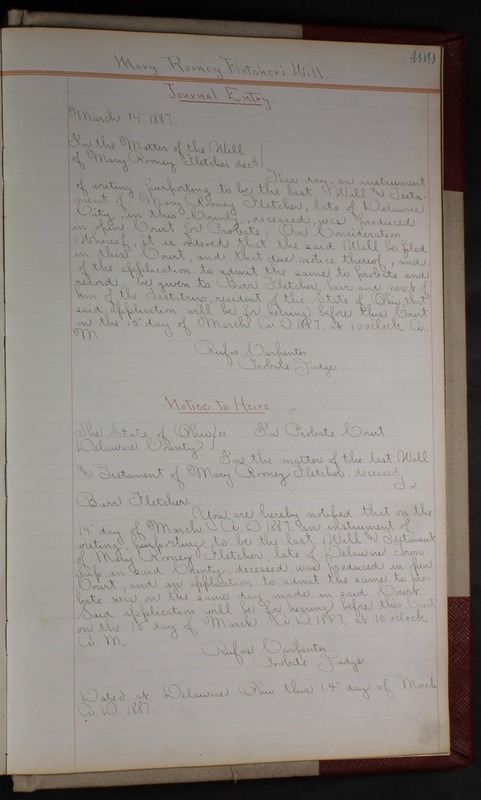 499
Mary Rooney Fletcher's Will.
Journal Entry.
March 14" 1887.
In the Matter of the Will
of Mary Rooney Fletcher dec'd
This day an instrument
of writing purporting to be the last Will and Testa-
ment of Mary Rooney Fletcher, late of Delaware
City in this County, deceased, was produced
in open Court for Probate. On Consideration
Whereof, it is ordered that the said Will be filed
in this Court, and that due notice thereof, and
of the application to admit the same to probate and
record, be given to Burr Fletcher, heir and next of
kin of the Testatrix, resident of the State of Ohio, that
said application will be for hearing before this Court
on the 15" day of March A.D. 1887, at 10 o'clock A.
M.
Rufus Carpenter
Probate Judge.
Notice to Heirs
The State of Ohio ss In Probate Court
Delaware County
In the matter of the last Will
and Testament of Mary Rooney Fletcher, deceased,
To
Burr Fletcher.
You are hereby notified that on the
14" day of March A.D. 1887, an instrument of
writing, purporting to be the last Will and Testament
of Mary Rooney Fletcher, late of Delaware Town
ship in said County, deceased, was produced in open
Court, and an application to admit the same to pro-
bate was on the same day made in said Court.
Said application will be for hearing before this Court
on the 15" day of March A.D. 1887, at 10 o'clock,
A. M.
Rufus Carpenter
Probate Judge
Dated at Delaware Ohio, this 14" day of March
A.D. 1887.